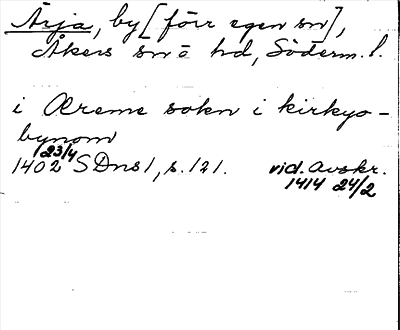 Ärja, by [förr egen sn],
Åkers sn o hd, Söderm. l.
i Æreme sokn i kirkyo-
bynom
1402 23/4 SDns 1, s. 121. vid. Avskr.
1414 24/2